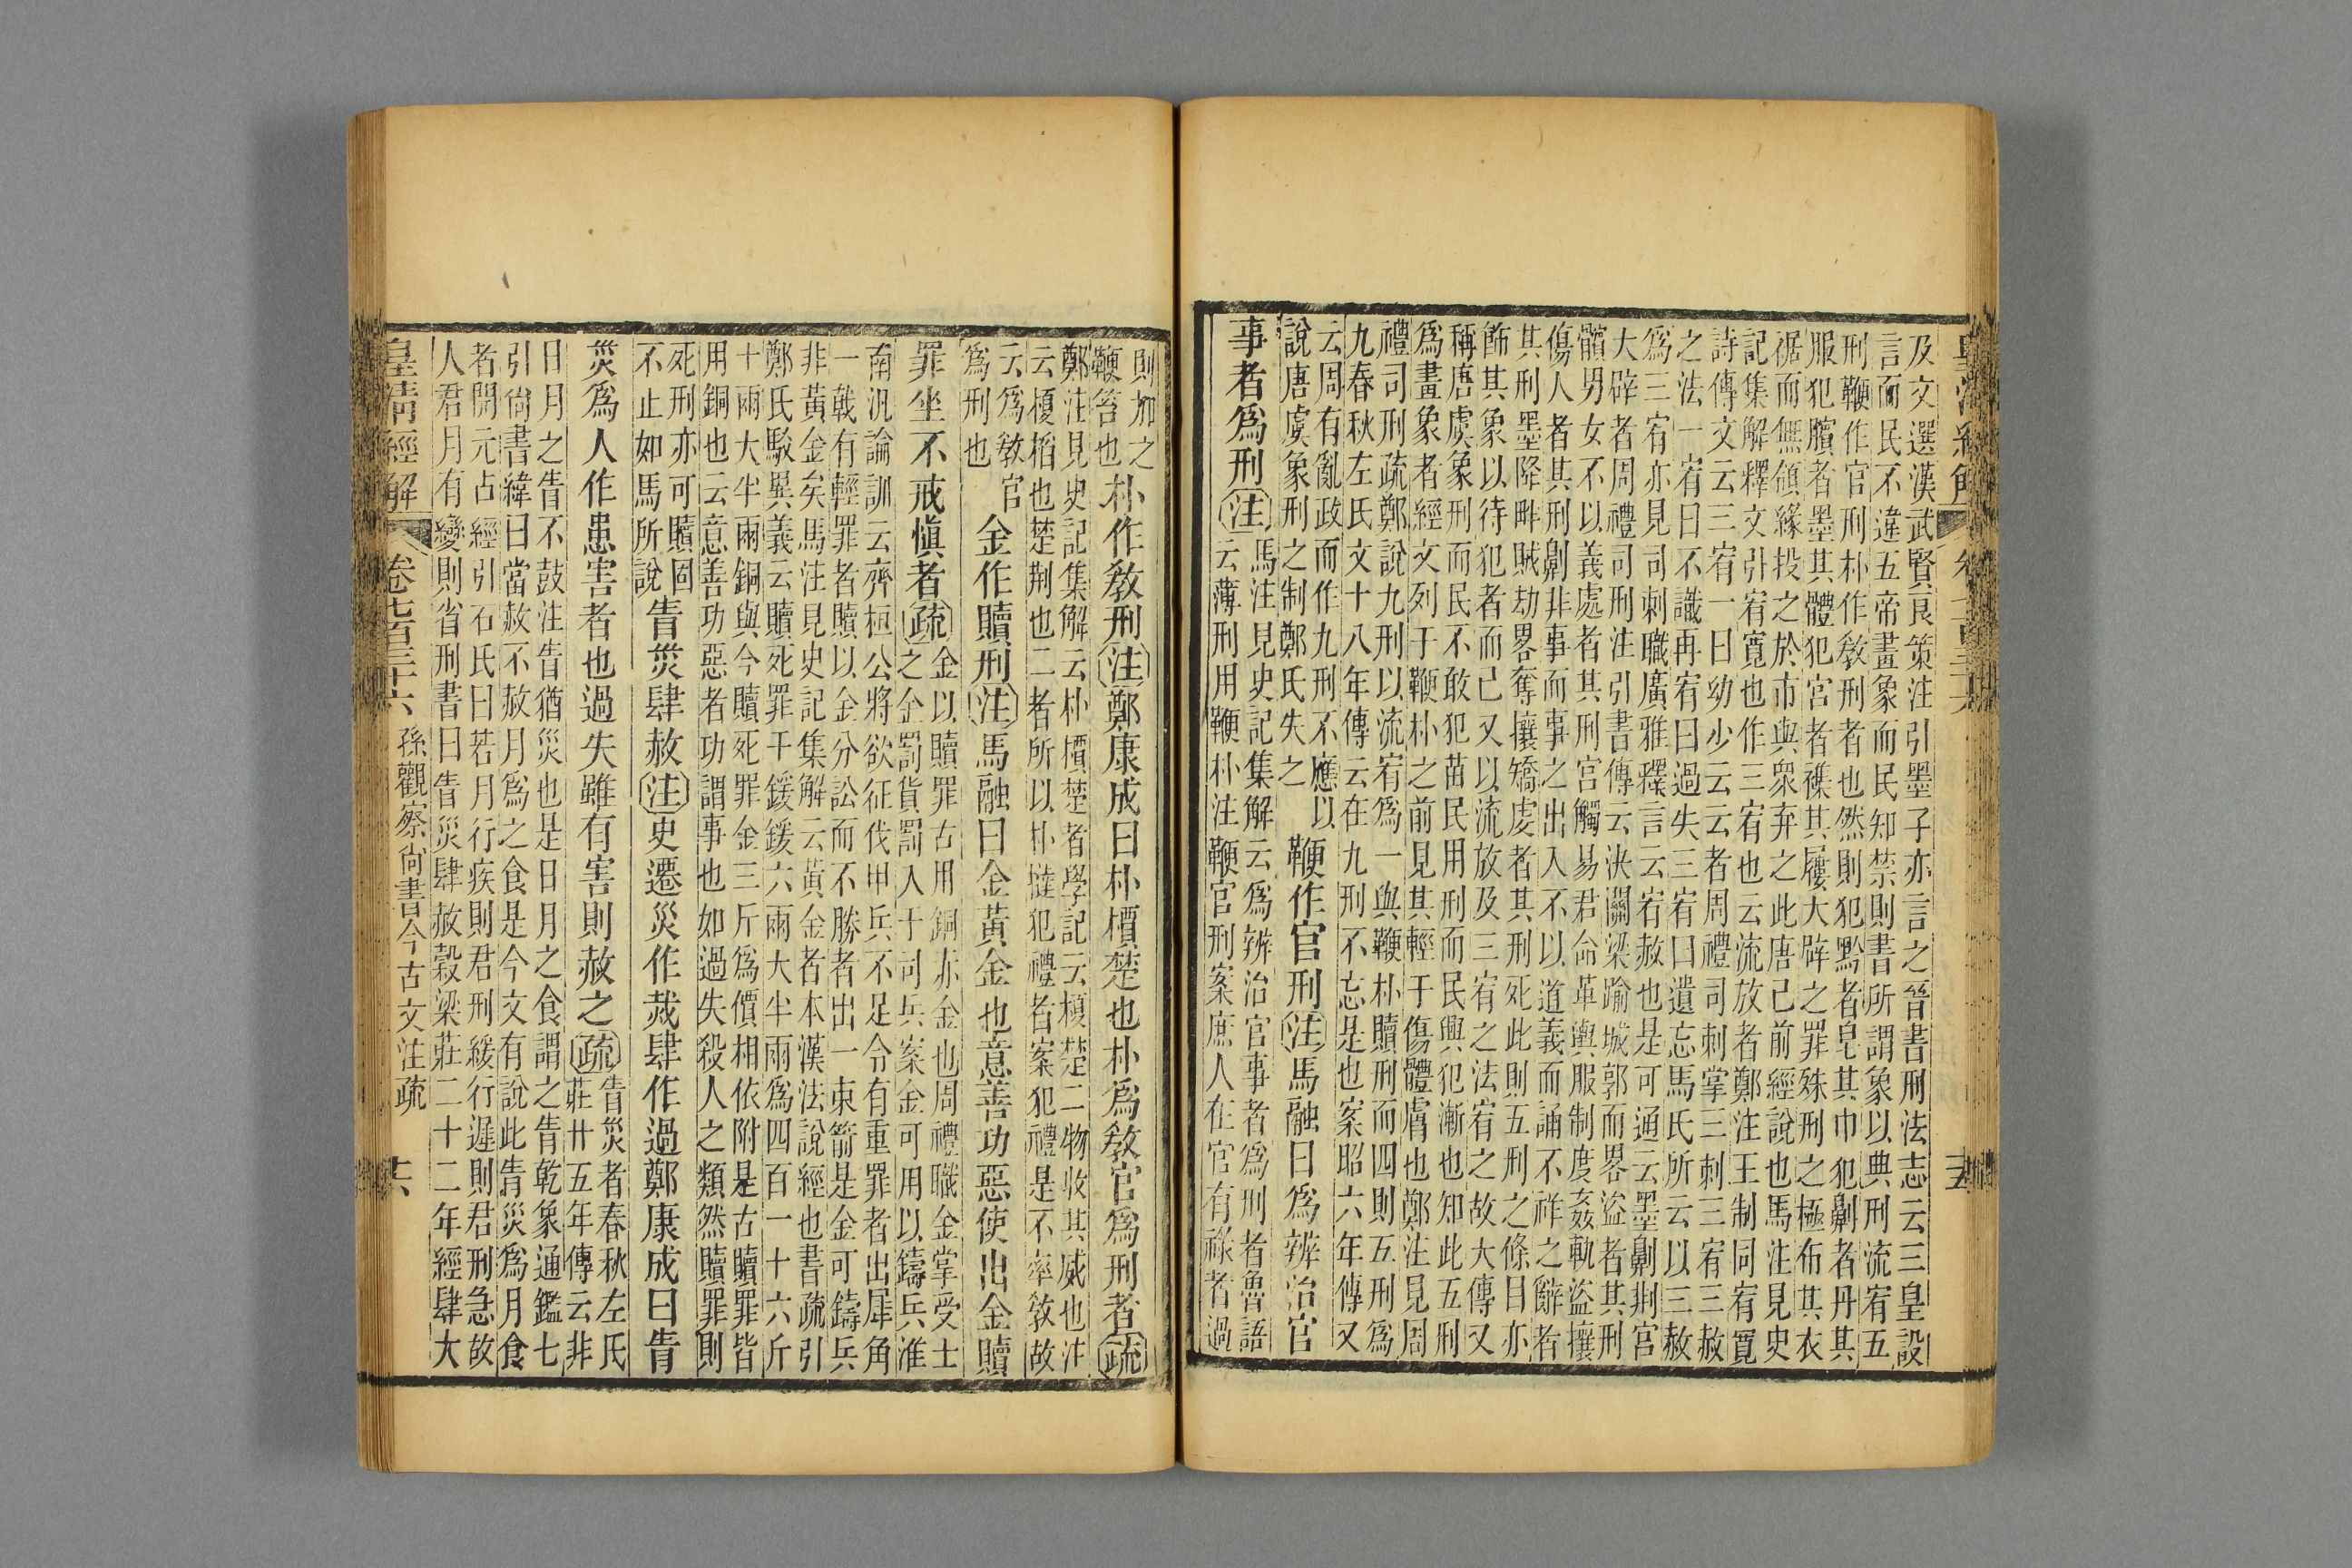 及文選漢武賢良策注引墨子亦言之晉書刑法志云三皇設
言而民不違五帝畫象而民知禁則書所謂象以典刑流宥五
刑鞭作官刑朴作教刑者也然則犯黥者皂其巾犯劓者丹其
服犯臏者墨其體犯宮者襍其屨大辟之罪殊刑之極布其衣
裾而無領緣投之於市與眾弃之此唐己前經說也馬注見史
記集解釋文引宥寬也作三宥也云流放者鄭注王制同宥寬
詩傳文云三宥一曰幼少云云者周禮司刺掌三刺三宥三赦
之法一宥曰不識再宥曰過失三宥曰遺忘馬氏所云以三赦
爲三宥亦見司刺職廣雅釋言云宥赦也是可通云墨劓荆宮
大辟者周禮司刑注引書傳云決關梁踰城郭而畧盜者其刑
髕男女不以義處者其刑宮觸易君命革輿服制度姦軌盜攘
傷人者其刑劓非事而事之出入不以道義而誦不祥之辭者
其刑墨降畔賊劫畧奪攘矯虔者其刑死此則五刑之條目亦
飾其象以待犯者而己又以流放及三宥之法宥之故大傳又
稱唐虞象刑而民不敢犯苗民用刑而民興犯漸也知此五刑
爲畫象者經文列于鞭朴之前見其輕于傷體膚也鄭注見周
禮司刑疏鄭說九刑以流宥爲一與鞭朴贖刑而四則五刑爲
九春秋左氏文十八年傳云在九刑不忘是也案昭六年傳又
云周有亂政而作九刑不應以
說唐虞象刑之制鄭氏失之
鞭作官刑注馬融曰爲辨治官
事者爲刑注
馬注見史記集解云爲辨治官事者爲刑者魯語
云薄刑用鞭朴注鞭官刑案庶人在官有祿者過
則加之
鞭笞也
朴作教刑注鄭康成曰朴檟楚也朴爲教官爲刑者疏
鄭注見史記集解云朴檟楚者學記云榎楚二物收其威也注
云榎稻也楚荆也二者所以朴撻犯禮者案犯禮是不率教故
云爲教官
爲刑也
金作贖刑注馬融曰金黃金也意善功惡使出金贖
罪坐不戒愼者疏
金以贖罪古用銅亦金也周禮職金掌受士
之金罰貨罰入于司兵案金可用以鑄兵淮
南汜論訓云齊桓公將欲征伐甲兵不足令有重罪者出犀角
一戟有輕罪者贖以金分訟而不勝者出一束箭是金可鑄兵
非黃金矣馬注見史記集解云黃金者本漢法說經也書疏引
鄭氏駁異義云贖死罪千鍰鍰六兩大半兩爲四百一十六斤
十兩大半兩銅與今贖死罪金三斤爲價相依附是古贖罪皆
用銅也云意善功惡者功謂事也如過失殺人之類然贖罪則
死刑亦可贖固
不止如馬所說
眚災肆赦注史遷災作烖肆作過鄭康成曰眚
災爲人作患害者也過失雖有害則赦之疏
眚災者春秋左氏
莊廿五年傳云非
日月之眚不鼓注眚猶災也是日月之食謂之眚乾象通鑑七
引尙書緯曰當赦不赦月爲之食是今文有說此眚災爲月食
者開元占經引石氏曰若月行疾則君刑緩行遲則君刑急故
人君月有變則省刑書曰眚災肆赦穀梁莊二十二年經肆大
皇清經解 卷七百三十六 孫觀察尙書今古文注疏 十六